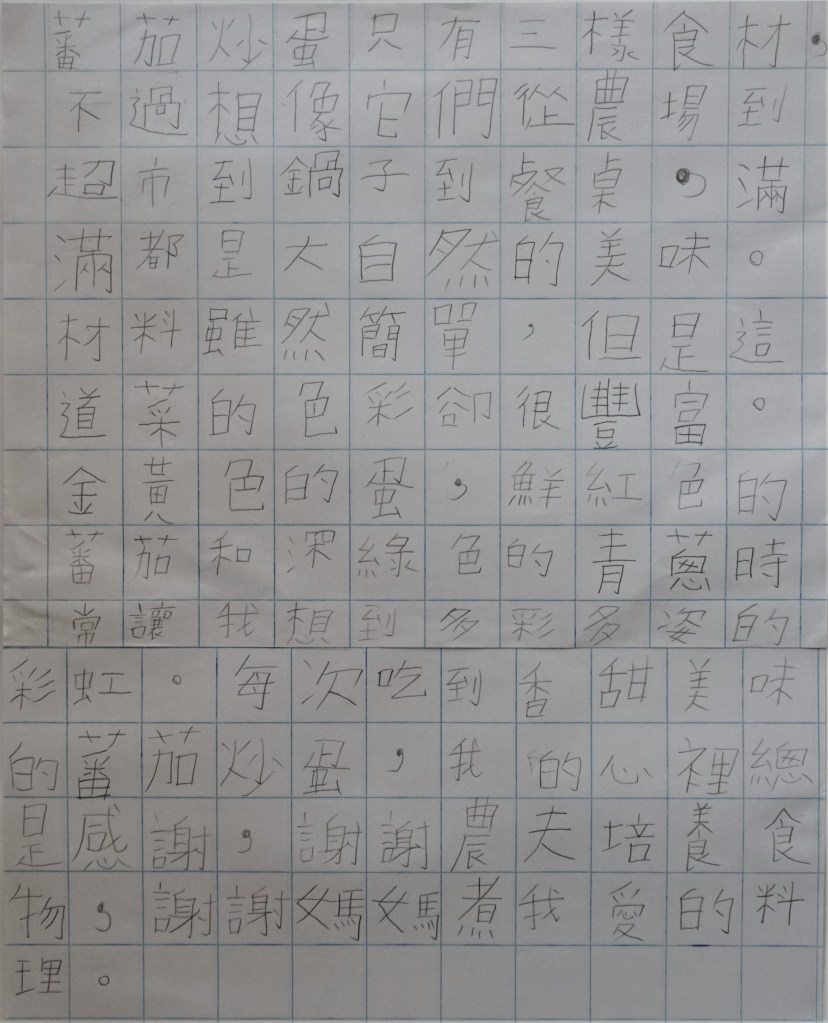 蕃茄炒蛋只有三樣食材，
不過想像它們從農場到
超市到鍋子到餐桌，滿
滿都是大自然的美味。
材料雖然簡單，但是這
道菜的色彩卻很豐富。
金黃色的蛋，鮮紅色的
蕃茄和深綠色的青蔥時
常讓我想到多彩多姿的
彩虹。每次吃到香甜美味
的蕃茄炒蛋，我的心裡總
是感謝，謝謝農夫培養食
物，謝謝媽媽煮我愛的料
理。